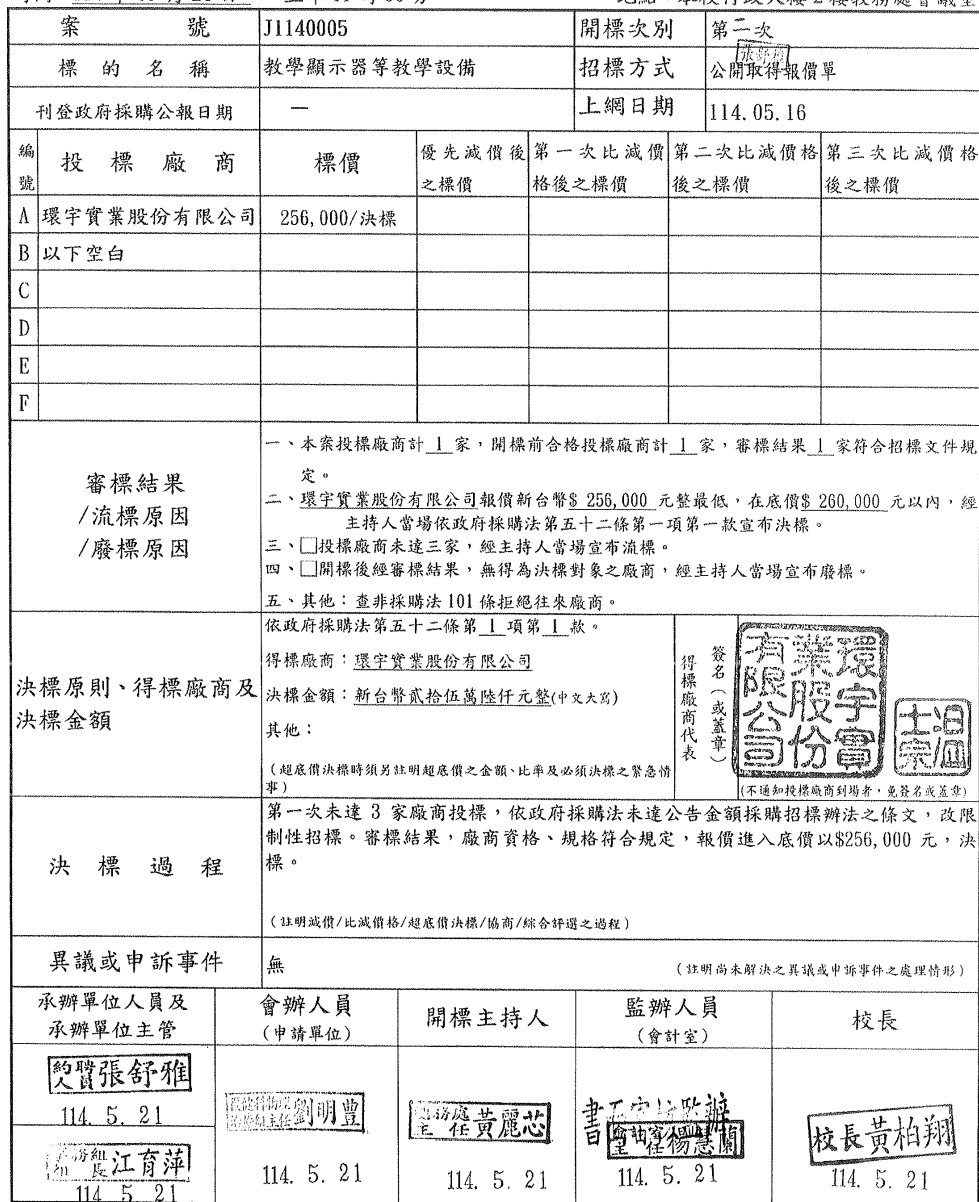 案 號 J1140005 開標次別 第二次
張舒雅
標 的 名 稱 教學顯示器等教學設備 招標方式 公開取得報價單
刊登政府採購公報日期 — 上網日期 114.05.16
編號 投 標 廠 商 標價 優先減價後之標價 第一次比減價格後之標價 第二次比減價格後之標價 第三次比減價格後之標價
A 環宇實業股份有限公司 256,000/決標
B 以下空白
C
D
E
F
審標結果
/流標原因
/廢標原因
一、本案投標廠商計 1 家,開標前合格投標廠商計 1 家,審標結果 1 家符合招標文件規
定。
二、環宇實業股份有限公司報價新台幣$ 256,000 元整最低,在底價$ 260,000 元以內,經
主持人當場依政府採購法第五十二條第一項第一款宣布決標。
三、□投標廠商未達三家,經主持人當場宣布流標。
四、□開標後經審標結果,無得為決標對象之廠商,經主持人當場宣布廢標。
五、其他:查非採購法 101 條拒絕往來廠商。
決標原則、得標廠商及
決標金額
依政府採購法第五十二條第 1 項第 1 款。
得標廠商:環宇實業股份有限公司
決標金額:新台幣貳拾伍萬陸仟元整(中文大寫)
其他:
(超底價決標時須另註明超底價之金額、比率及必須決標之緊急情
事)
得標廠商代表
簽名(或蓋章)
環宇實業股份有限公司
(不通知投標廠商到場者,免簽名或蓋章)
決 標 過 程
第一次未達 3 家廠商投標,依政府採購法未達公告金額採購招標辦法之條文,改限
制性招標。審標結果,廠商資格、規格符合規定,報價進入底價以$256,000 元,決
標。
(註明減價/比減價格/超底價決標/協商/綜合評選之過程)
異議或申訴事件 無 (註明尚未解決之異議或申訴事件之處理情形)
承辦單位人員及
承辦單位主管
會辦人員
(申請單位)
開標主持人
監辦人員
(會計室)
校長
約聘人員張舒雅
114. 5. 21
組長江育萍
114 5 21
劉明豊
114. 5. 21
主任黃麗芯
114. 5. 21
書面審核監辦
會計室主任楊慧蘭
114. 5. 21
校長黃柏翔
114. 5. 21